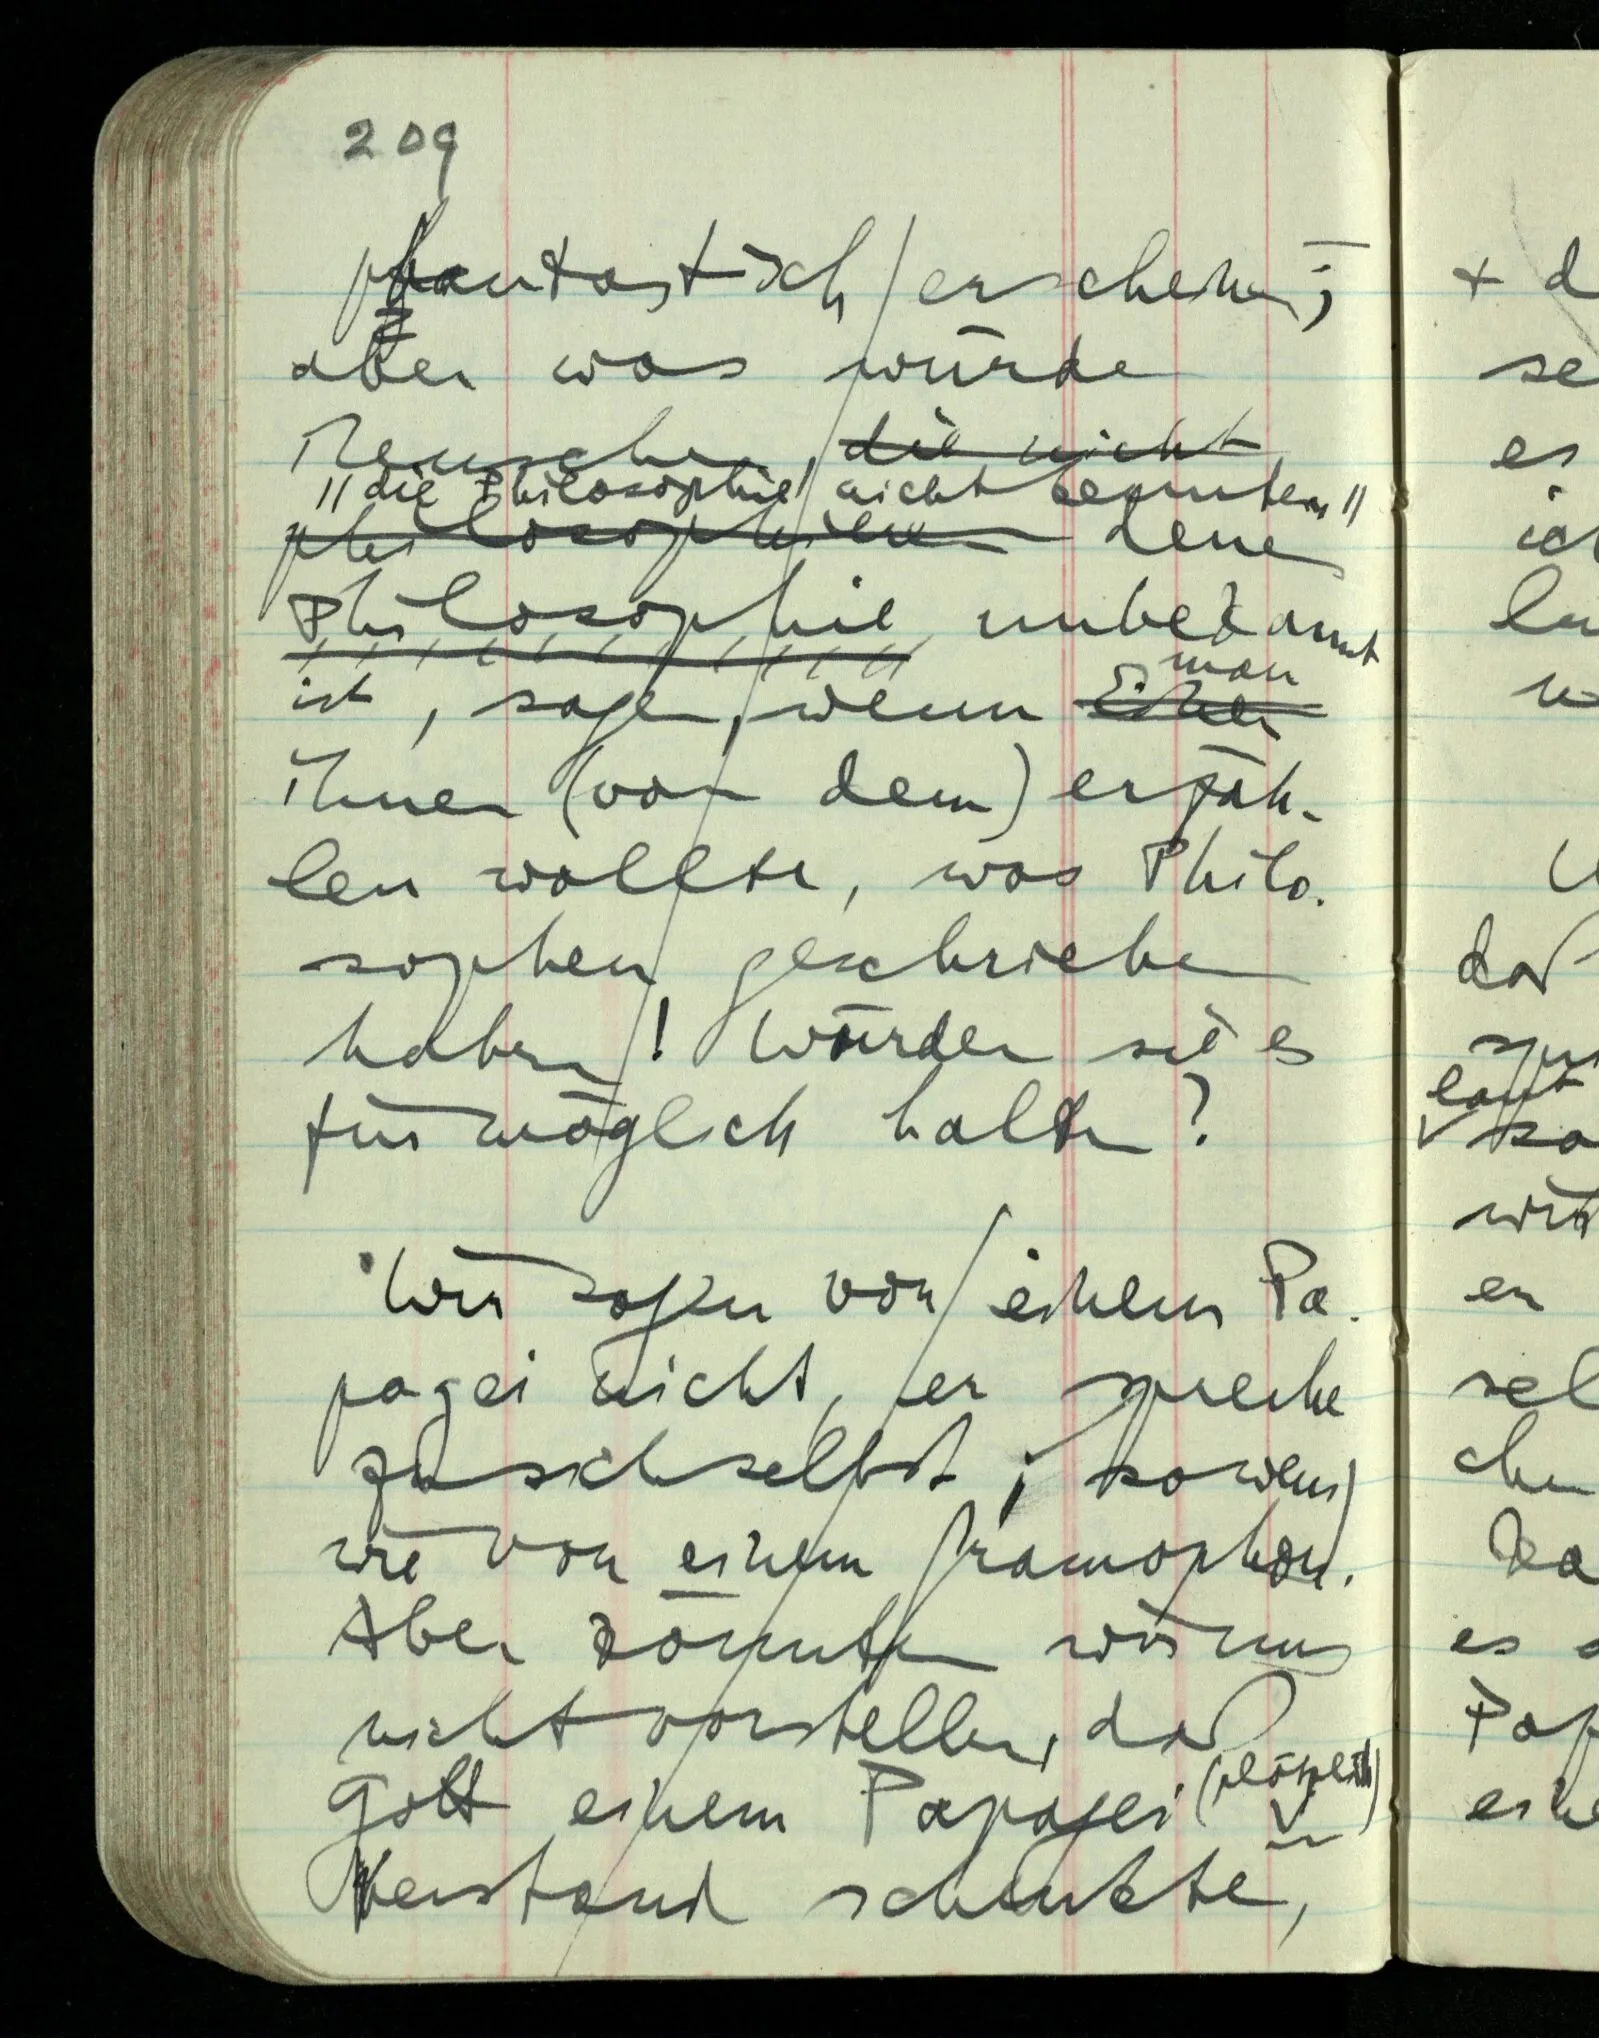 209
phantastisch erscheinen;
aber was würde
Menschen, die nicht
"die Philosophie nicht kennten"
philosophieren denen
Philosophie unbekannt
man
ist, sagen, wenn Einer
ihnen (von dem) erzäh-
len wollte, was Philo-
sophen geschrieben
haben! Würden sie es
für möglich halten?
Wir sagen von einem Pa-
pagei nicht, er spreche
zu sich selbst; sowenig
wie von einem Gramophon.
Aber könnten wir uns
nicht vorstellen, daß
(plötzlich)
Gott einem Papagei
Verstand schenkte,
+ d
se
es
ich
w
daß
laut
so
wir
en
sel
che
es
Pap
eine